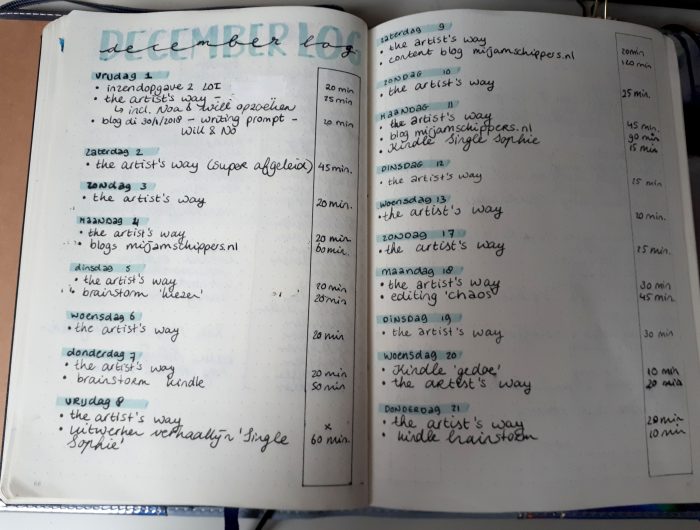 DECEMBER LOG
december log
vrijdag 1
• inzendopgave 2 LOI 20 min
• the artist's way - 25 min.
↳ incl. Noa & Will opzoeken
• blog di 30/1/2018 - writing prompt - 20 min
Will & No
zaterdag 2
• the artist's way (super afgeleid) 45 min.
zondag 3
• the artist's way 20 min.
maandag 4
• the artist's way 20 min
• blogs mirjamschippers.nl 60 min.
dinsdag 5
• the artist's way 20 min
• brainstorm 'kiezen' 20 min
woensdag 6
• the artist's way 20 min
donderdag 7
• the artist's way 20 min
• brainstorm kindle 50 min
vrijdag 8
• the artist's way x
• uitwerken verhaallijn 'Single 60 min.
Sophie'
zaterdag 9
• the artist's way 20 min
• content blog mirjamschippers.nl min
ZONDAG 10
• the artist's way 25 min.
MAANDAG 11
• the artist's way 45 min.
• blog mirjamschippers.nl 90 min.
• Kindle Single Sophie 15 min.
DINSDAG 12
• the artist's way 15 min
woensdag 13
• the artist's way 20 min.
ZONDAG 17
• the artist's way 25 min.
maandag 18
• the artist's way 30 min
• editing 'chaos' 45 min.
DINSDAG 19
• the artist's way 30 min
WOENSDAG 20
• Kindle 'gedoe' 10 min
• the artist's way 20 min
DONDERDAG 21
• the artist's way 20 min
• kindle brainstorm 10 min